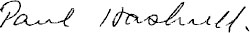 Paul Haskell.